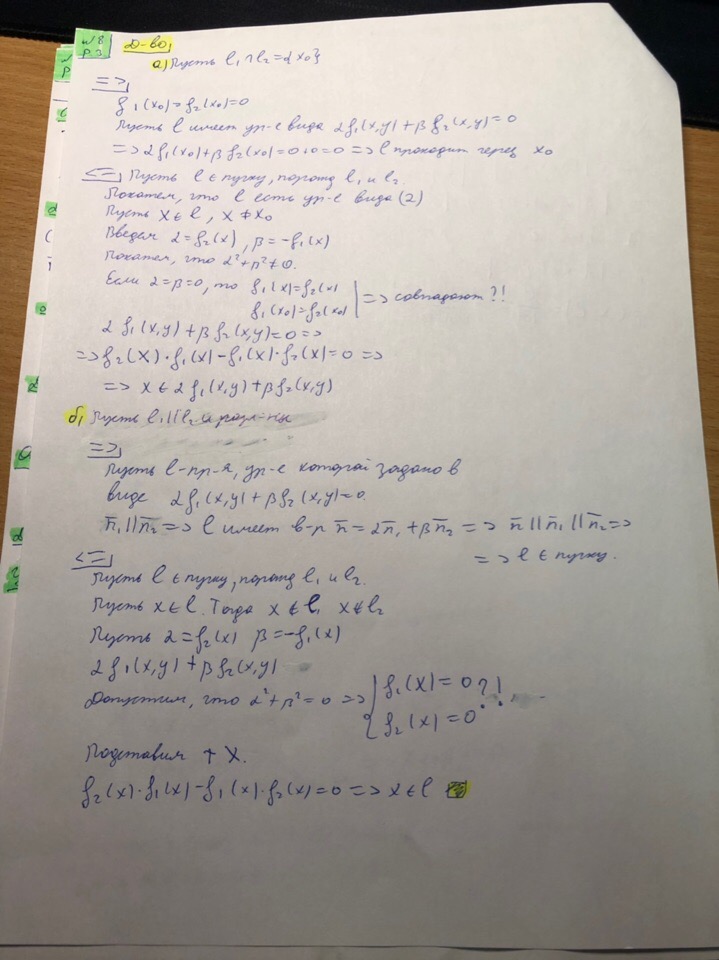 №8
р.3
Д-во,
а) Пусть l₁ ∩ l₂ = {x₀}
=>
f₁(x₀) = f₂(x₀) = 0
Пусть l имеет ур-е вида αf₁(x,y) + βf₂(x,y) = 0
=> αf₁(x₀) + βf₂(x₀) = 0+0=0 => l проходит через x₀
<= Пусть l ∈ пучку, порожд l₁ и l₂.
Покажем, что l есть ур-е вида (2)
Пусть X ∈ l, X ≠ x₀
Введем α = f₂(x), β = -f₁(x)
Покажем, что α² + β² ≠ 0.
Если α = β = 0, то f₁(x) = f₂(x)
f₁(x₀) = f₂(x₀) | => совпадают ?!
αf₁(x,y) + βf₂(x,y) = 0 =>
=> f₂(X)·f₁(x) - f₁(x)·f₂(x) = 0 =>
=> x ∈ αf₁(x,y) + βf₂(x,y)
б) Пусть l₁ || l₂ и разл-ны
=>
Пусть l - пр-я, ур-е которой задано в
виде αf₁(x,y) + βf₂(x,y) = 0.
n̄₁ || n̄₂ => l имеет в-р n̄ = αn̄₁ + βn̄₂ => n̄ || n̄₁ || n̄₂ =>
=> l ∈ пучку.
<=
Пусть l ∈ пучку, порожд l₁ и l₂.
Пусть x ∈ l. Тогда x ∉ l₁ x ∉ l₂
Пусть α = f₂(x) β = -f₁(x)
αf₁(x,y) + βf₂(x,y)
Допустим, что α² + β² = 0 => { f₁(x) = 0 ?!
f₂(x) = 0
Подставим т X.
f₂(x)·f₁(x) - f₁(x)·f₂(x) = 0 => x ∈ l